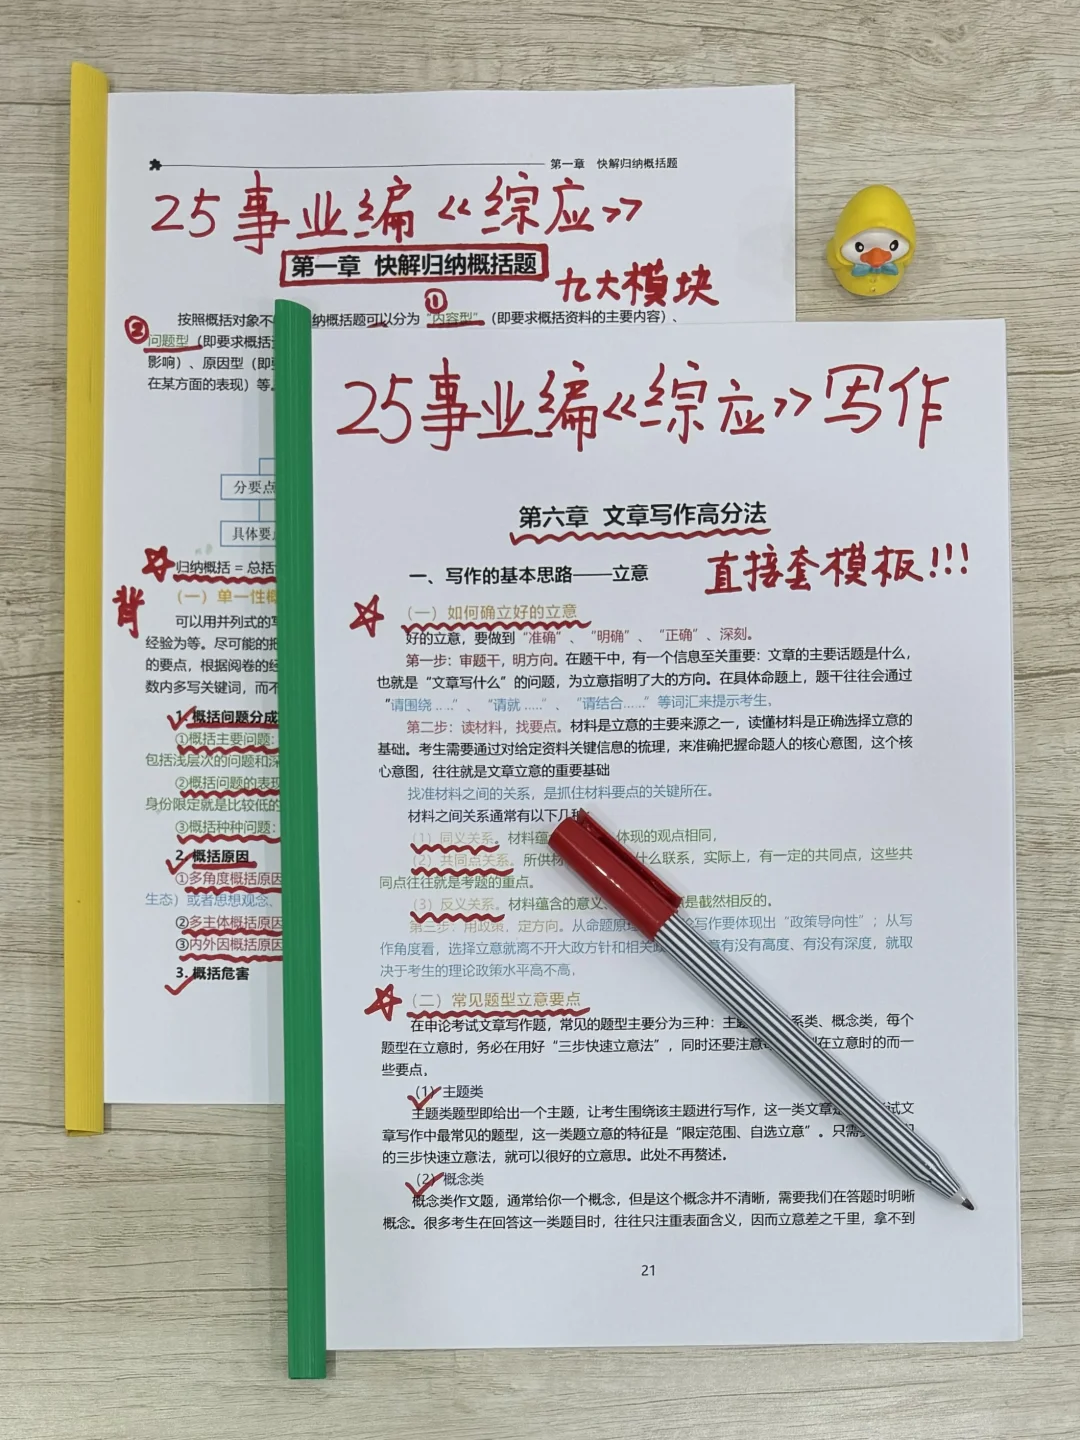 第一章 快解归纳概括题
25事业编《综应》
第一章 快解归纳概括题
九大模块
①
按照概括对象不 纳概括题可以分为“内容型”（即要求概括资料的主要内容）、
②
问题型（即要求概括
影响）、原因型（即
在某方面的表现）等。
分要点
具体要
归纳概括 = 总括
背
（一）单一性概
可以用并列式的写
经验为等。尽可能的把
的要点，根据阅卷的经
数内多写关键词，而不
1. 概括问题分成
①概括主要问题：
包括浅层次的问题和深
②概括问题的表现
身份限定就是比较低的
③概括种种问题：
2. 概括原因
①多角度概括原因
生态）或者思想观念、
②多主体概括原因
③内外因概括原因
3. 概括危害
25事业编《综应》写作
第六章 文章写作高分法
直接套模板!!!
一、写作的基本思路——立意
（一）如何确立好的立意
好的立意，要做到“准确”、“明确”、“正确”、深刻。
第一步：审题干，明方向。在题干中，有一个信息至关重要：文章的主要话题是什么，
也就是“文章写什么”的问题，为立意指明了大的方向。在具体命题上，题干往往会通过
“请围绕……”、“请就……”、“请结合……”等词汇来提示考生，
第二步：读材料，找要点。材料是立意的主要来源之一，读懂材料是正确选择立意的
基础。考生需要通过对给定资料关键信息的梳理，来准确把握命题人的核心意图，这个核
心意图，往往就是文章立意的重要基础
找准材料之间的关系，是抓住材料要点的关键所在。
材料之间关系通常有以下几种
（1）同义关系。材料蕴 体现的观点相同，
（2）共同点关系。所供材 什么联系，实际上，有一定的共同点，这些共
同点往往就是考题的重点。
（3）反义关系。材料蕴含的意义、 是截然相反的。
第三步：用政策，定方向。从命题原 写作要体现出“政策导向性”；从写
作角度看，选择立意就离不开大政方针和相关 意有没有高度、有没有深度，就取
决于考生的理论政策水平高不高，
（二）常见题型立意要点
在申论考试文章写作题，常见的题型主要分为三种：主题 系类、概念类，每个
题型在立意时，务必在用好“三步快速立意法”，同时还要注意 在立意时的而一
些要点，
（1）主题类
主题类题型即给出一个主题，让考生围绕该主题进行写作，这一类文章是 试文
章写作中最常见的题型，这一类题立意的特征是“限定范围、自选立意”。只需
的三步快速立意法，就可以很好的立意思。此处不再赘述。
（2）概念类
概念类作文题，通常给你一个概念，但是这个概念并不清晰，需要我们在答题时明晰
概念。很多考生在回答这一类题目时，往往只注重表面含义，因而立意差之千里，拿不到
21